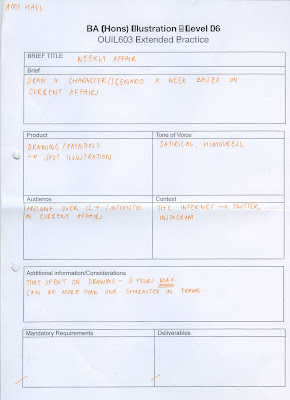 AMY HALL
BA (Hons) Illustration - Level 06
OUIL603 Extended Practice
BRIEF TITLE WEEKLY AFFAIR
Brief
DRAW A CHARACTER/SCENARIO A WEEK BASED ON
CURRENT AFFAIRS
Product
DRAWING/PAINTING
↳ SPOT ILLUSTRATION
Tone of Voice
SATIRICAL, HUMOUROUS
Audience
ANYONE OVER 12+ / INTERESTED
IN CURRENT AFFAIRS
Context
THE INTERNET → TWITTER,
INSTAGRAM
Additional information/Considerations
TIME SPENT ON DRAWING - 3 HOURS MAX
CAN AD MORE THAN ONE CHARACTER IN FRAME.
Mandatory Requirements
Deliverables